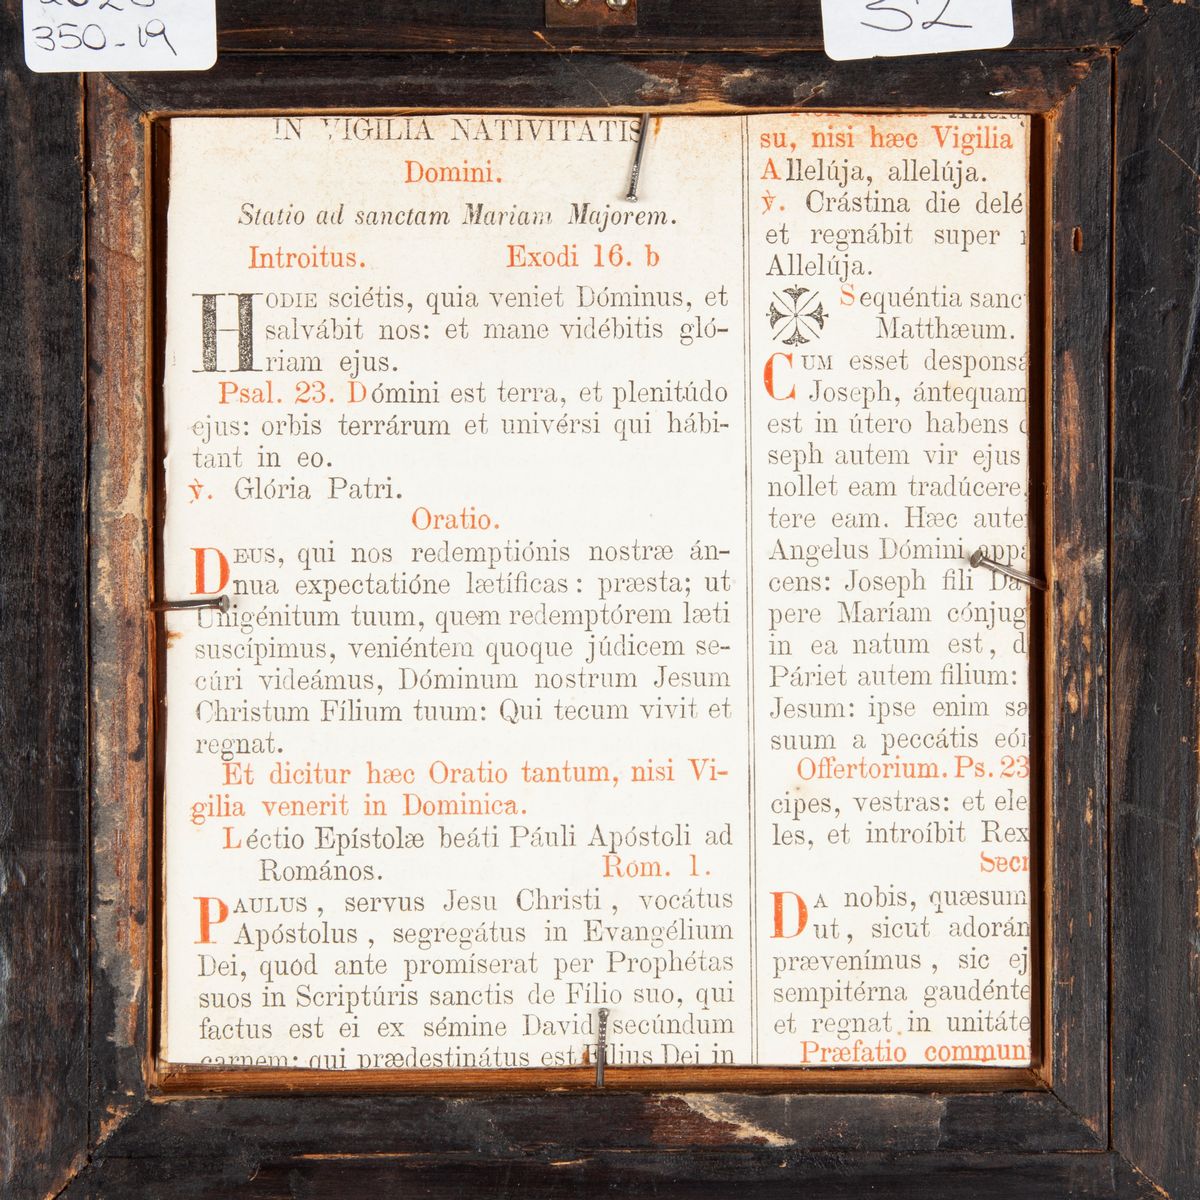 350-19
52
IN VIGILIA NATIVITATIS
Domini.
Statio ad sanctam Mariam Majorem.
Introitus. Exodi 16. b
HODIE sciétis, quia veniet Dóminus, et
salvábit nos: et mane vidébitis gló-
riam ejus.
Psal. 23. Dómini est terra, et plenitúdo
ejus: orbis terrárum et univérsi qui hábi-
tant in eo.
℣. Glória Patri.
Oratio.
DEUS, qui nos redemptiónis nostræ án-
nua expectatióne lætíficas: præsta; ut
Unigénitum tuum, quem redemptórem læti
suscípimus, veniéntem quoque júdicem se-
cúri videámus, Dóminum nostrum Jesum
Christum Fílium tuum: Qui tecum vivit et
regnat.
Et dicitur hæc Oratio tantum, nisi Vi-
gilia venerit in Dominica.
Léctio Epístolæ beáti Páuli Apóstoli ad
Romános. Rom. 1.
PAULUS, servus Jesu Christi, vocátus
Apóstolus, segregátus in Evangélium
Dei, quod ante promíserat per Prophétas
suos in Scriptúris sanctis de Fílio suo, qui
factus est ei ex sémine David secúndum
carnem: qui prædestinátus est Fílius Dei in
su, nisi hæc Vigilia
Allelúja, allelúja.
℣. Crástina die delé
et regnábit super
Allelúja.
Sequéntia sanc
Matthæum.
CUM esset desponsá
Joseph, ántequam
est in útero habens
seph autem vir ejus
nollet eam tradúcere,
tere eam. Hæc aute
Angelus Dómini appa
cens: Joseph fili Da
pere Maríam cónjug
in ea natum est, d
Páriet autem filium:
Jesum: ipse enim sa
suum a peccátis eó
Offertorium. Ps. 23
cipes, vestras: et ele
les, et introíbit Rex
Secr
DA nobis, quæsum
ut, sicut adorán
prævenímus, sic ej
sempitérna gaudénte
et regnat in unitáte
Præfatio commun